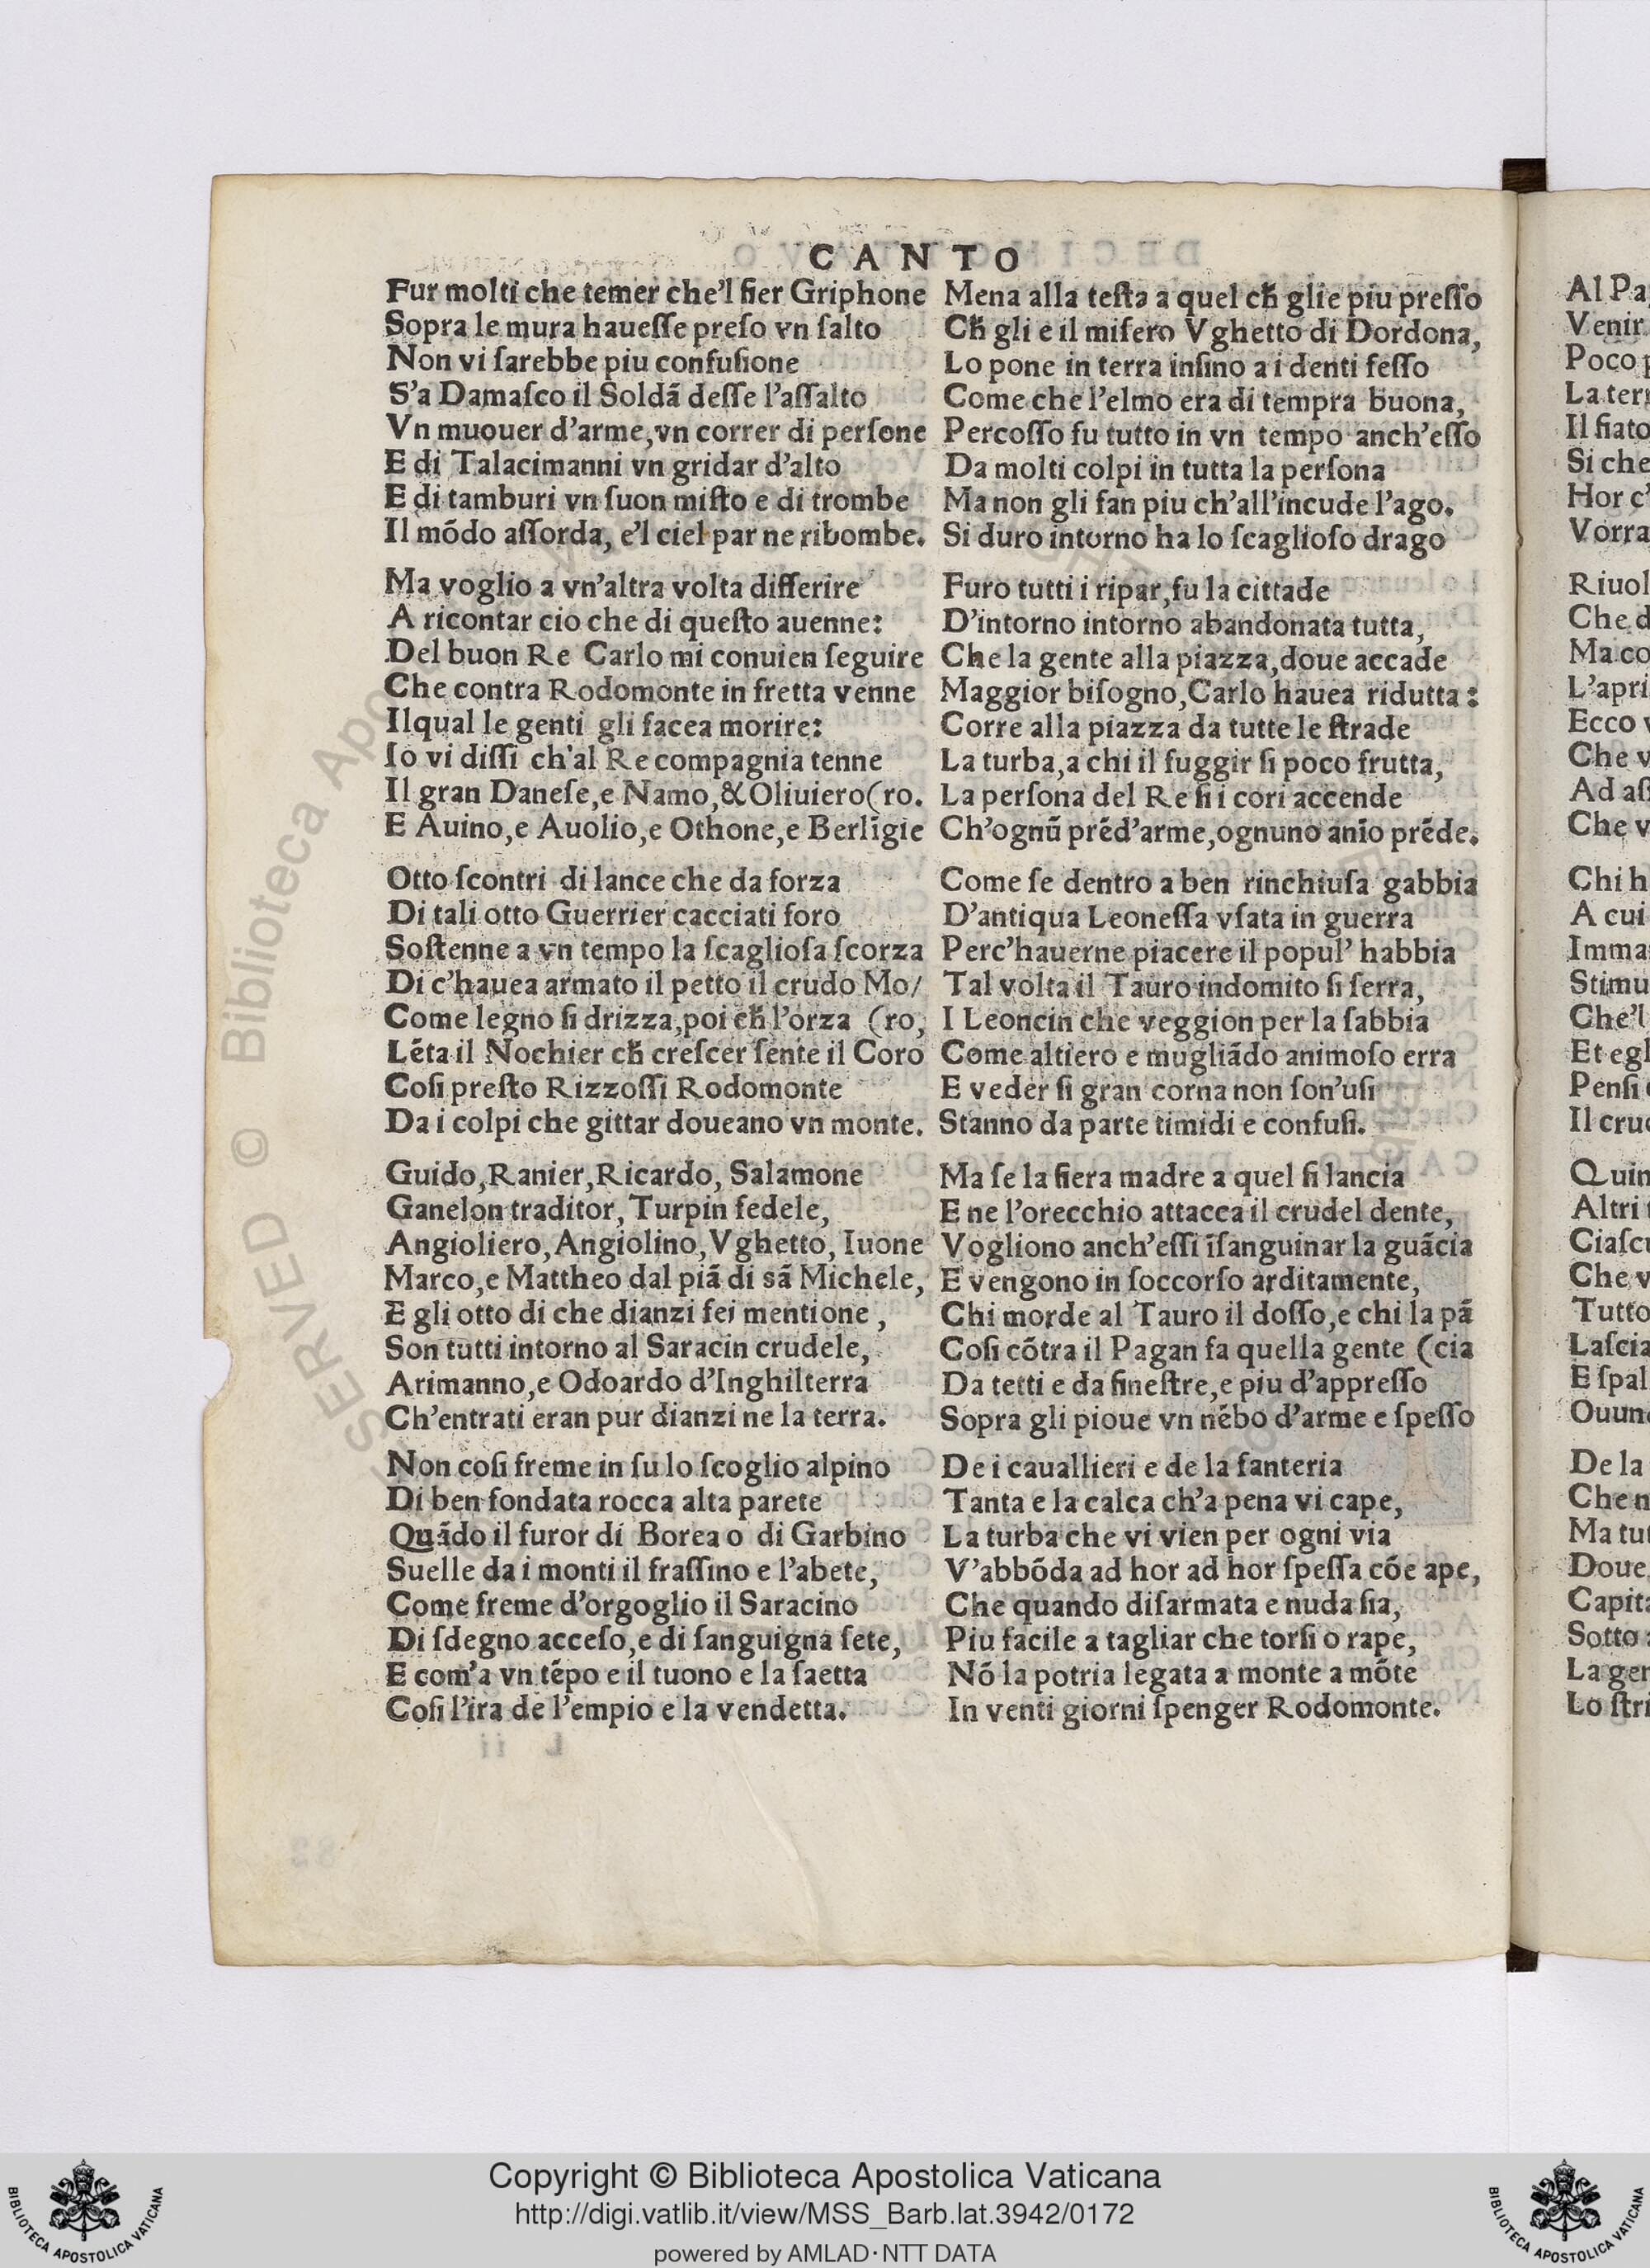 CANTO
Fur molti che temer che'l fier Griphone
Sopra le mura haueſſe preſo vn ſalto
Non vi ſarebbe piu confuſione
S'a Damaſco il Soldã deſſe l'aſſalto
Vn muouer d'arme,vn correr di perſone
E di Talacimanni vn gridar d'alto
E di tamburi vn ſuon miſto e di trombe
Il mõdo aſſorda, e'l ciel par ne ribombe.
Ma voglio a vn'altra volta differire
A ricontar cio che di queſto auenne:
Del buon Re Carlo mi conuien ſeguire
Che contra Rodomonte in fretta venne
Ilqual le genti gli facea morire:
Io vi diſſi ch'al Re compagnia tenne
Il gran Daneſe,e Namo,&Oliuiero(ro.
E Auino,e Auolio,e Othone,e Berlīgie
Otto ſcontri di lance che da forza
Di tali otto Guerrier cacciati foro
Soſtenne a vn tempo la ſcaglioſa ſcorza
Di c'hauea armato il petto il crudo Mo/
Come legno ſi drizza,poi cħ l'orza (ro,
Lẽta il Nochier cħ creſcer ſente il Coro
Coſi preſto Rizzoſſi Rodomonte
Da i colpi che gittar doueano vn monte.
Guido,Ranier,Ricardo, Salamone
Ganelon traditor, Turpin fedele,
Angioliero,Angiolino,Vghetto, Iuone
Marco,e Mattheo dal piã di sã Michele,
E gli otto di che dianzi fei mentione ,
Son tutti intorno al Saracin crudele,
Arimanno,e Odoardo d'Inghilterra
Ch'entrati eran pur dianzi ne la terra.
Non coſi freme in ſu lo ſcoglio alpino
Di ben fondata rocca alta parete
Quãdo il furor di Borea o di Garbino
Suelle da i monti il fraſſino e l'abete,
Come freme d'orgoglio il Saracino
Di ſdegno acceſo,e di ſanguigna ſete,
E com'a vn tẽpo e il tuono e la ſaetta
Coſi l'ira de l'empio e la vendetta.
Mena alla teſta a quel cħ glie piu preſſo
Cħ gli e il miſero Vghetto di Dordona,
Lo pone in terra inſino a i denti feſſo
Come che l'elmo era di tempra buona,
Percoſſo fu tutto in vn tempo anch'eſſo
Da molti colpi in tutta la perſona
Ma non gli fan piu ch'all'incude l'ago.
Si duro intorno ha lo ſcaglioſo drago
Furo tutti i ripar,fu la cittade
D'intorno intorno abandonata tutta,
Che la gente alla piazza,doue accade
Maggior biſogno,Carlo hauea ridutta:
Corre alla piazza da tutte le ſtrade
La turba,a chi il fuggir ſi poco frutta,
La perſona del Re ſi i cori accende
Ch'ognũ prẽd'arme,ognuno anīo prẽde.
Come ſe dentro a ben rinchiuſa gabbia
D'antiqua Leoneſſa vſata in guerra
Perc'hauerne piacere il popul' habbia
Tal volta il Tauro indomito ſi ſerra,
I Leoncin che veggion per la ſabbia
Come altiero e mugliãdo animoſo erra
E veder ſi gran corna non ſon'uſi
Stanno da parte timidi e confuſi.
Ma ſe la fiera madre a quel ſi lancia
E ne l'orecchio attacca il crudel dente,
Vogliono anch'eſſi īſanguinar la guãcia
E vengono in ſoccorſo arditamente,
Chi morde al Tauro il doſſo,e chi la pã
Coſi cõtra il Pagan fa quella gente (cia
Da tetti e da fineſtre,e piu d'appreſſo
Sopra gli pioue vn nẽbo d'arme e ſpeſſo
De i cauallieri e de la fanteria
Tanta e la calca ch'a pena vi cape,
La turba che vi vien per ogni via
V'abbõda ad hor ad hor ſpeſſa cõe ape,
Che quando diſarmata e nuda ſia,
Piu facile a tagliar che torſi o rape,
Nõ la potria legata a monte a mõte
In venti giorni ſpenger Rodomonte.
Al Pa
Venir
Poco p
La terr
Il fiato
Si che
Hor c'
Vorra
Riuol
Che d
Ma co
L'apri
Ecco v
Che v
Ad aſſ
Che v
Chi h
A cui
Imma
Stimu
Che'l
Et egl
Penſi
Il cru
Quin
Altri
Ciaſcu
Che v
Tutto
Laſcia
E ſpal
Ouun
De la
Che n
Ma tut
Doue
Capita
Sotto
La gen
Lo ſtri
Copyright © Biblioteca Apostolica Vaticana
http://digi.vatlib.it/view/MSS_Barb.lat.3942/0172
powered by AMLAD·NTT DATA
BIBLIOTECA APOSTOLICA VATICANA
BIBLIOTECA APOSTOLICA VATICANA